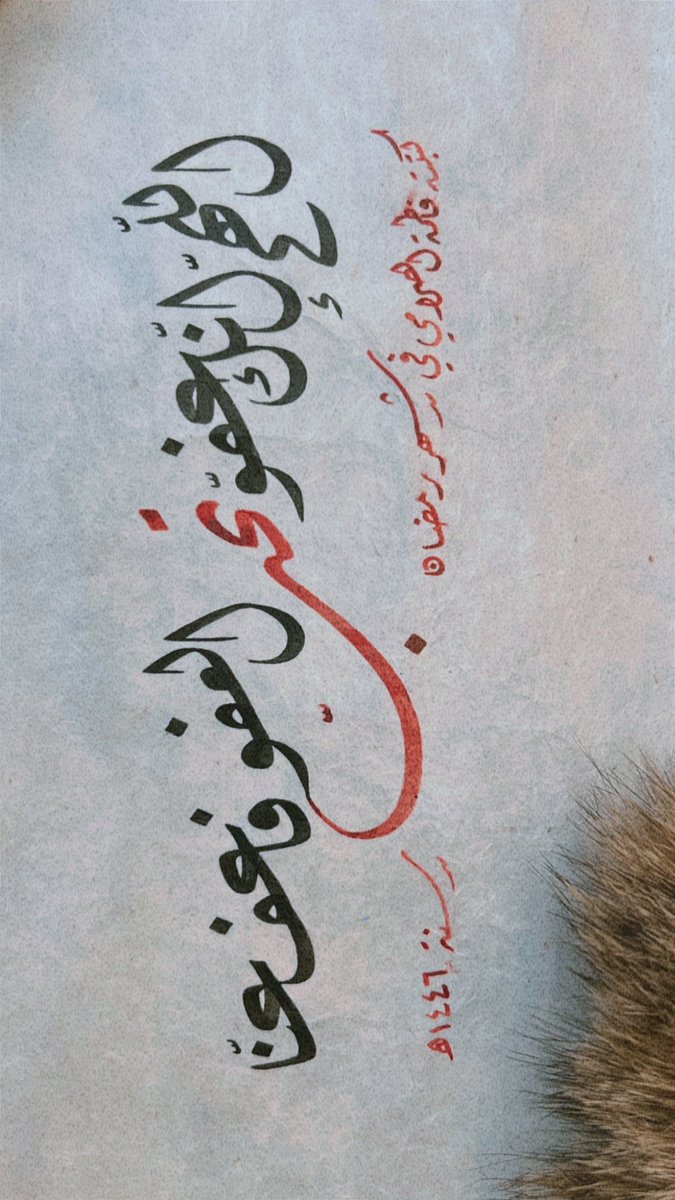 اللهم إنك عفو تحب العفو فاعف عنا
كتبته فاطمة في شهر رمضان
سنة ١٤٤٦ھ